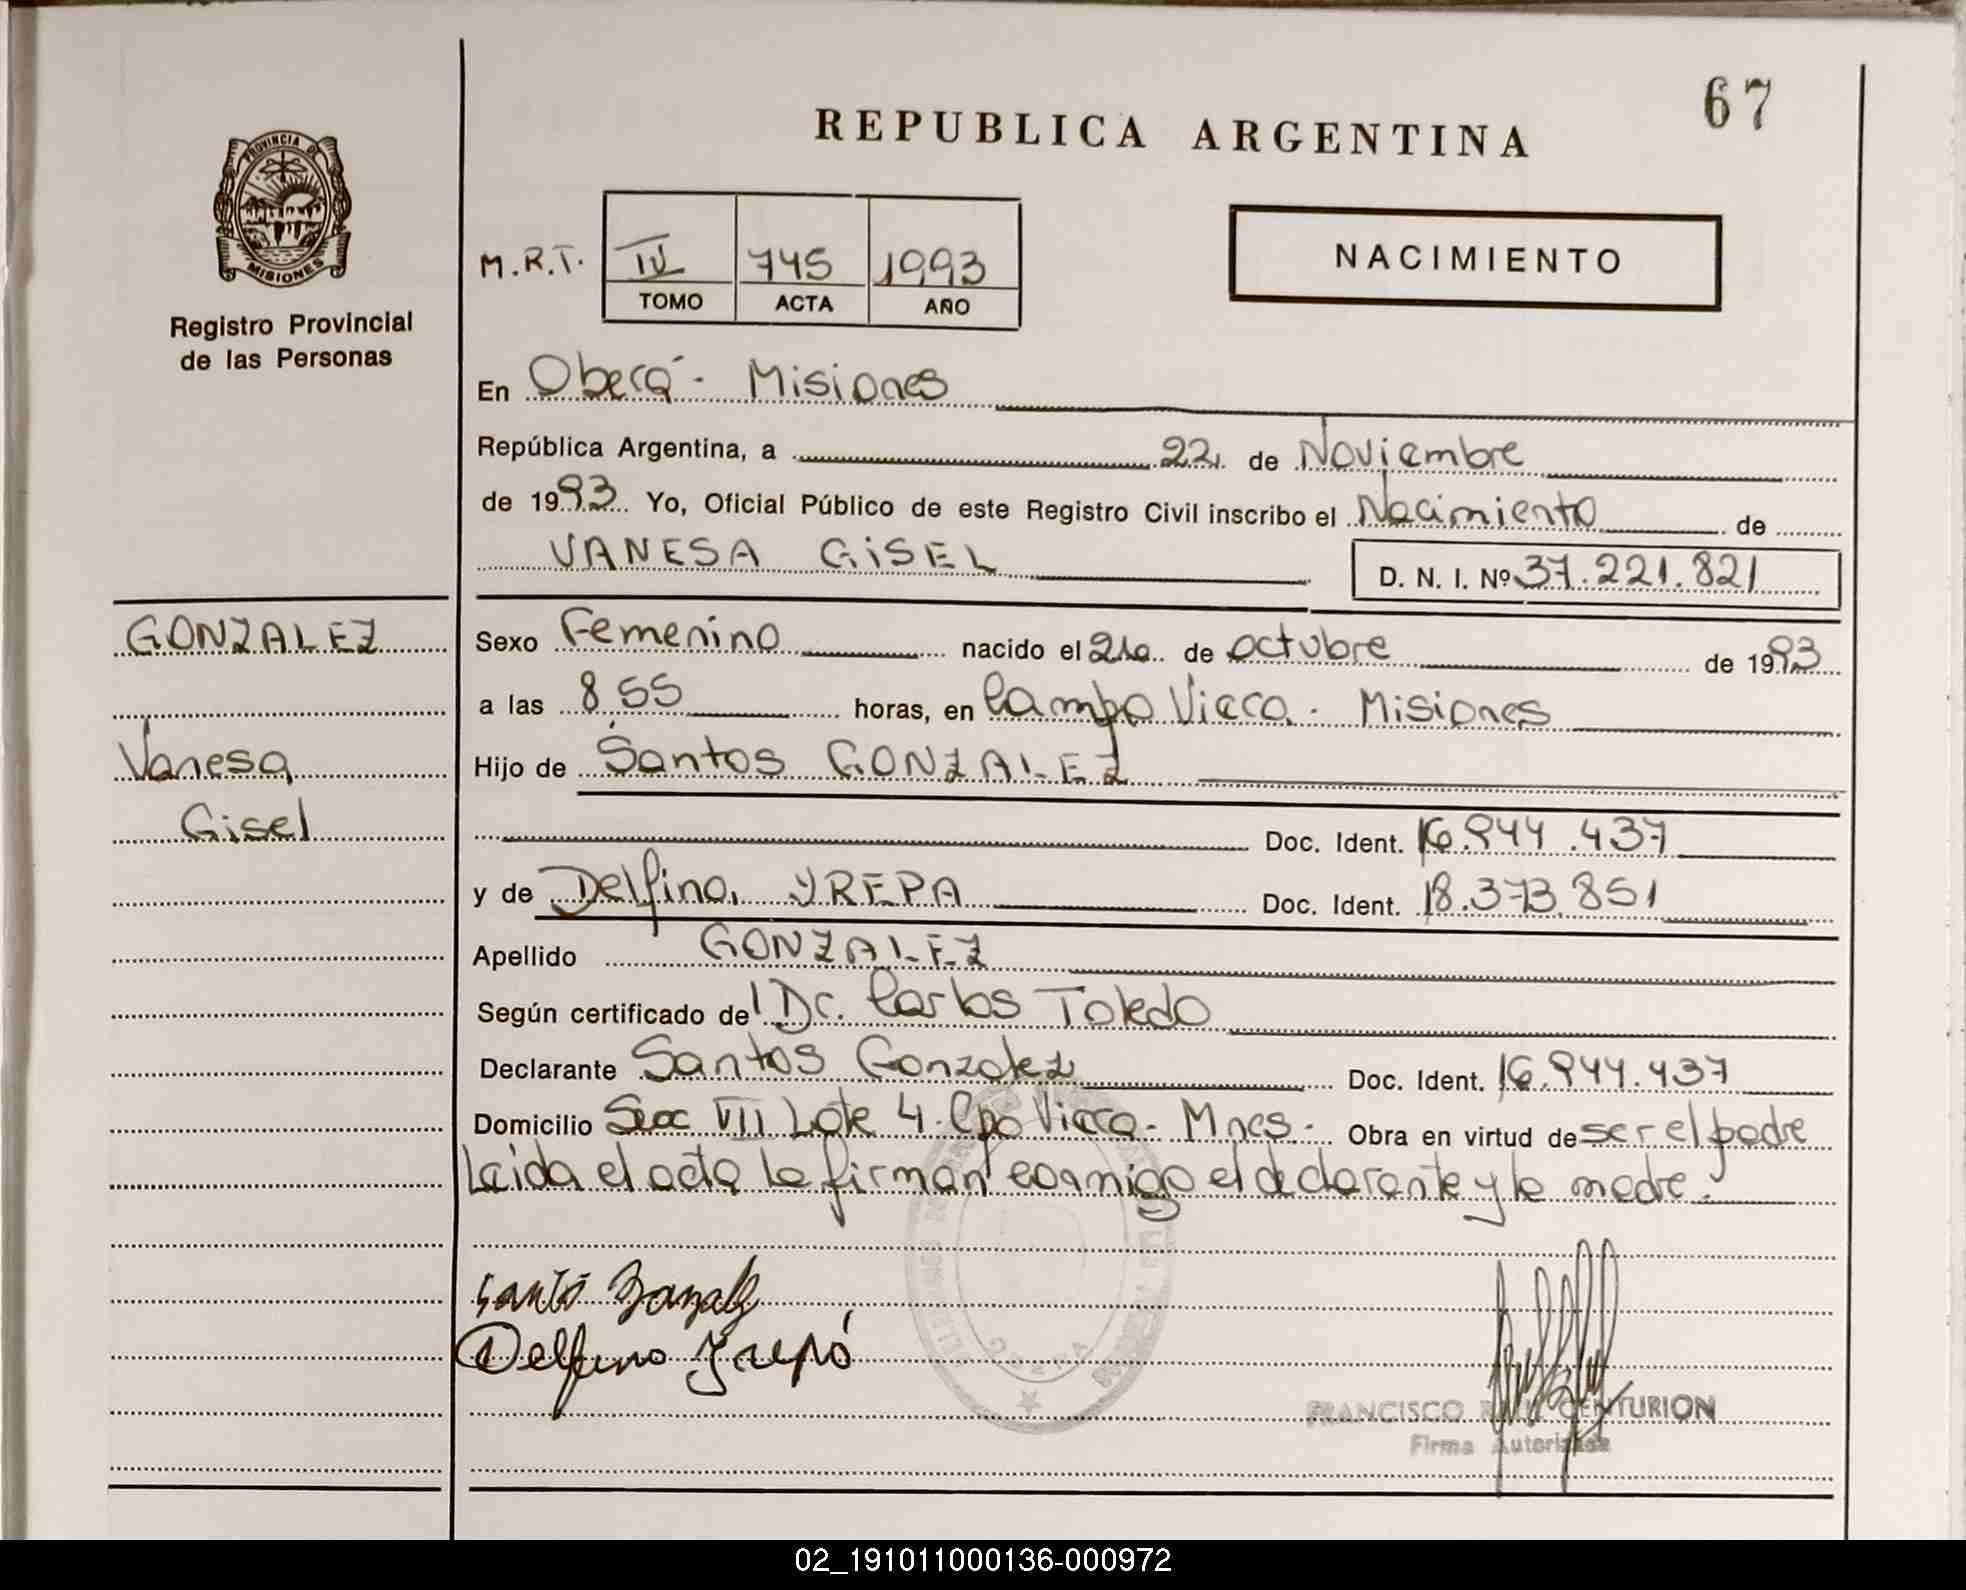 67
REPUBLICA ARGENTINA
PROVINCIA DE
MISIONES
Registro Provincial
de las Personas
M.R.T. IV 745 1993
TOMO ACTA AÑO
NACIMIENTO
En Oberá - Misiones
República Argentina, a 22 de Noviembre
de 1993 Yo, Oficial Público de este Registro Civil inscribo el Nacimiento de
VANESA GISEL D. N. I. Nº 37.221.821
GONZALEZ
Vanesa
Gisel
Sexo Femenino nacido el 21 de octubre de 1993
a las 8,55 horas, en Campo Viera - Misiones
Hijo de Santos GONZALEZ
Doc. Ident. 16.944.437
y de Delfina YREPA Doc. Ident. 18.373.851
Apellido GONZALEZ
Según certificado de Dr. Carlos Toledo
Declarante Santos Gonzalez Doc. Ident. 16.944.437
Domicilio Secc VII Lote 4 Cpo Viera - Mnes. Obra en virtud de ser el padre
Leida el acta la firman conmigo el declarante y la madre.
OBERA
FRANCISCO RAUL CENTURION
Firma Autorizada
02_191011000136-000972